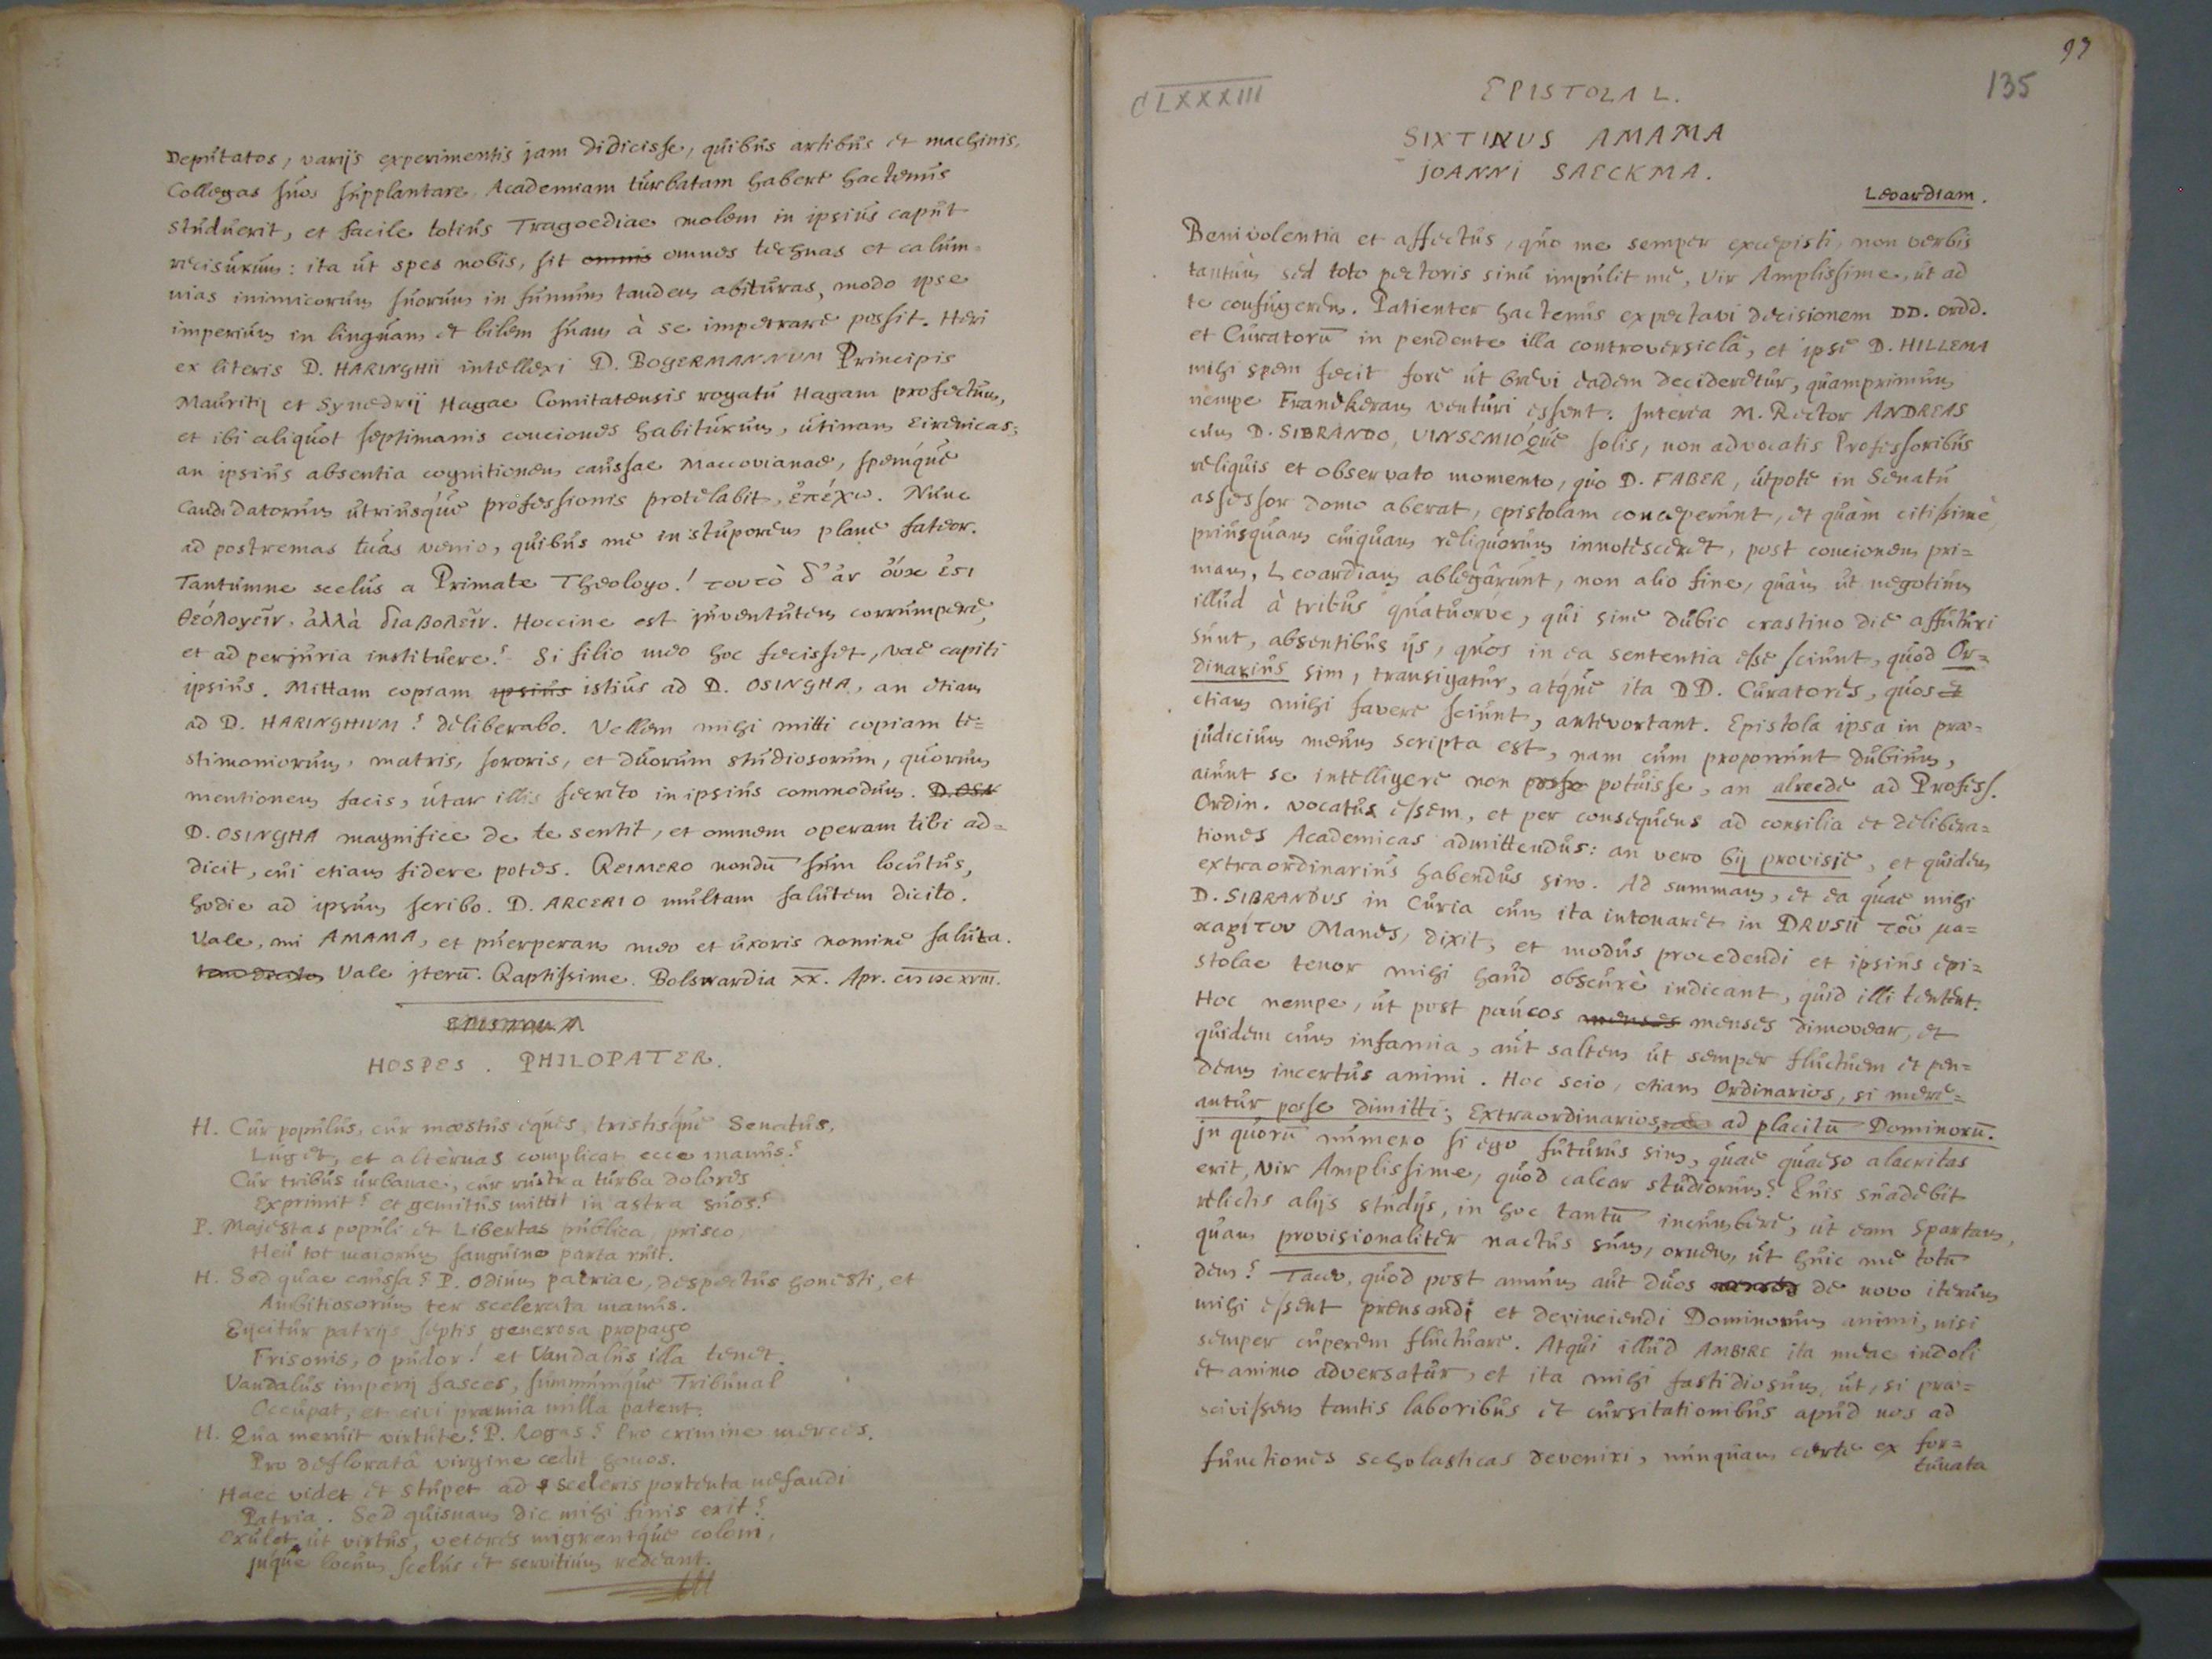 Deputatos, varijs experimentis jam didicisse, quibus artibus et machinis,
Collegas suos supplantare Academiam turbatam habere hactenus
studuerit, et facile totius Tragoediae molem in ipsius caput
recisurum: ita ut spes nobis, sit omnis omnes technas et calum-
nias inimicorum suorum in fumum tandem abituras, modo ipse
imperium in linguam et bilem suam à se impetrare possit. Heri
ex literis D. HARINGHII intellexi D. BOGERMANNUM Principis
Mauritij et Synedrij Hagae Comitatensis rogatu Hagam profectum,
et ibi aliquot septimanis conciones habiturum, utinam Eirenicas;
an ipsius absentia cognitionem caussae Maccovianae, spemque
Candidatorum utriusque professionis protelabit, ἐπέχω. Nunc
ad postremas tuas venio, quibus me in stuporem plane fateor.
Tantumne scelus a Primate Theologo! τουτὸ δ'ἀν ὀυκ ἐςι
θεόλογεῖν, ἀλλὰ διαβολεῖν. Hoccine est juventutem corrumpere,
et ad perjuria instituere? Si filio meo hoc fecisset, vae capiti
ipsius. Mittam copiam ipsius istius ad D. OSINGHA, an etiam
ad D. HARINGHIUM? deliberabo. Vellem mihi mitti copiam te=
stimoniorum, matris, sororis, et duorum studiosorum, quorum
mentionem facis, utar illis secreto in ipsius commodum. D. OSN
D. OSINGHA magnifice de te sentit, et omnem operam tibi ad=
dicit, cui etiam fidere potes. REIMERO nondū sum locutus,
hodie ad ipsum scribo. D. ARCERIO multam salutem dicito.
Vale, mi AMAMA, et puerperam meo et uxoris nomine saluta.
Vale iterū. Raptissime. Bolswardia XX. Apr. CIƆ IƆC XVIII.
HOSPES. PHILOPATER.
H. Cur populus, cur moestus eques, tristisque Senatus,
Luget, et alternas complicat ecce manus?
Cur tribus urbanae, cur rustra turba dolores
Exprimit? et gemitus mittit in astra suos?
P. Majestas populi et Libertas publica, prisco,
Heu tot maiorum sanguine parta ruit.
H. Sed quae caussa? P. Odium patriae, despectus honesti, et
Ambitiosorum ter scelerata manus.
Eijcitur patrijs septis generosa propago
Frisonis, o pudor! et Vandalus illa tenet.
Vandalus imperij fasces, summumque Tribunal
Occupat, et civi praemia nulla patent.
H. Qua meruit virtute? P. Rogas? Pro crimine merces.
Pro deflorata virgine cedit honos.
Haec videt et stupet ad sceleris portenta nefandi
Patria. Sed quisnam dic mihi finis erit?
Exulet ut virtus, veteres migrentque coloni,
juque locum scelus et servitium redeant.
97
135
CLXXXIII
EPISTOLA L.
SIXTINUS AMAMA
JOANNI SAECKMA.
Leovardiam.
Benivolentia et affectus, quo me semper excepisti, non verbis
tantum sed toto pectoris sinu impulit me, Vir Amplissime, ut ad
te confugerem. Patienter hactenus expectavi decisionem DD. Ordd.
et Curatorū in pendente illa controversiola, et ipse D. HILLEMA
mihi spem fecit fore ut brevi eadem decideretur, quamprimum
nempe Franekeram venturi essent. Interea M. Rector ANDREAS
cum D. SIBRANDO, VINSEMIOque solis, non advocatis Professoribus
reliquis et observato momento, quo D. FABER, utpote in Senatu
assessor domo aberat, epistolam conceperunt, et quàm citissime,
priusquam cuiquam reliquorum innotesceret, post concionem pri=
mam, Leovardiam ablegârunt, non alio fine, quàm ut negotium
illud à tribus quatuorve, qui sine dubio crastino die affuturi
sunt, absentibus ijs, quos in ea sententia esse sciunt, quod Or=
dinarius sim, transigatur, atque ita DD. Curatores, quos et
etiam mihi favere sciunt, antevortant. Epistola ipsa in prae=
judicium meum scripta est, nam cum proponunt dubium,
aiunt se intelligere non posse potuisse, an alreede ad Profess.
Ordin. vocatus essem, et per consequens ad consilia et delibera=
tiones Academicas admittendus: an vero bij provisie, et quidem
extraordinarius habendus sim. Ad summam, et ea quae mihi
D. SIBRANDUS in Curia cum ita intonaret in DRUSII τοῦ μα=
καρίτου Manes, dixit, et modus procedendi et ipsius epi=
stolae tenor mihi haud obscurè indicant, quid illi tentent.
Hoc nempe, ut post paucos menses menses dimovear, et
quidem cum infamia, aut saltem ut semper fluctuem et pen=
deam incertus animi. Hoc scio, etiam Ordinarios, si mere=
antur posse dimitti; Extraordinarios, ad placitū Dominorū.
In quorū numero si ego futurus sim, quae quaeso alacritas
erit, Vir Amplissime, quod calcar studiorum? Quis suadebit
relictis alijs studijs, in hoc tantū incumbere, ut eam Spartam,
quam provisionaliter nactus sum, ornem, ut huic me totū
dem? Taceo, quod post annum aut duos menses de novo iterum
mihi essent prensandi et devinciendi Dominorum animi, nisi
semper cuperem fluctuare. Atqui illud AMBIRE ita meae indoli
et animo adversatur, et ita mihi fastidiosum, ut, si prae=
scivissem tantis laboribus et cursitationibus apud nos ad
functiones scholasticas deveniri, nunquam certe ex for=
tunata